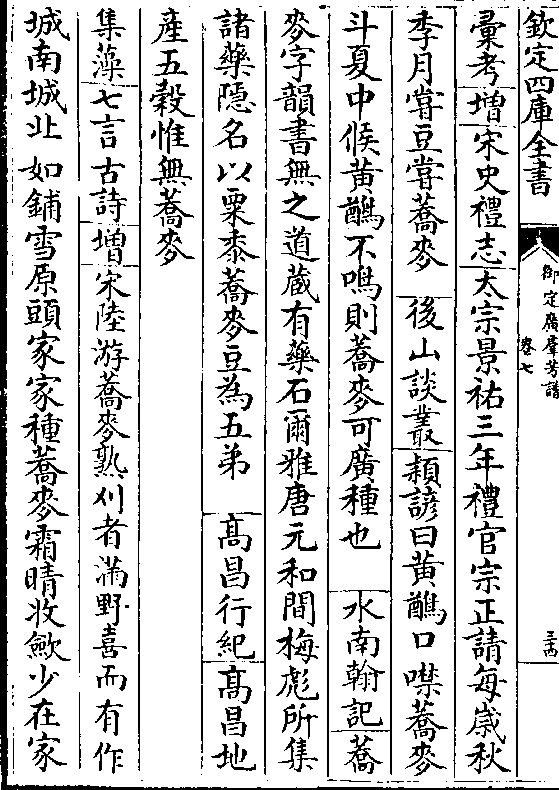 欽定四庫全書
御定廣羣芳譜
卷七
三四
彚考增宋史禮志太宗景祐三年禮官宗正請每歲秋
季月嘗豆嘗蕎麥　後山談叢頴諺曰黄鷦口噤蕎麥
斗夏中候黄鷦不鳴則蕎麥可廣種也　水南翰記蕎
麥字韻書無之道藏有藥石爾雅唐元和間梅彪所集
諸藥隱名以粟黍蕎麥豆為五弟　髙昌行紀髙昌地
産五穀惟無蕎麥
集藻七言古詩增宋陸游蕎麥熟刈者滿野喜而有作
城南城北如鋪雪原頭家家種蕎麥霜晴收歛少在家